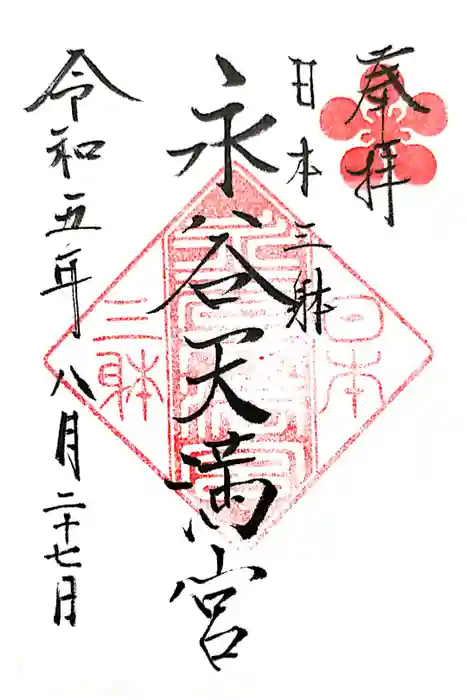 奉拝
日本三躰
永谷天満宮
令和五年八月二十七日
日本
三躰